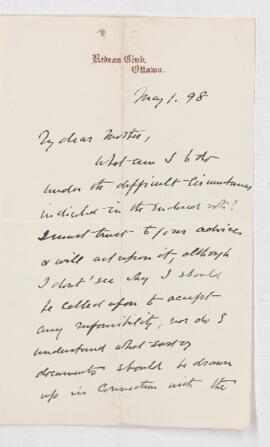 Rideau Club,
Ottawa.
May 1. 98
My dear Mother,
What am I to do
under the difficult circumstances
indicated in the enclosed note?
I must trust to your advice
& will act upon it, although
I don't see why I should
be called upon to accept
any responsibility, nor do I
understand what sort of
documents should be drawn
up in connection with the